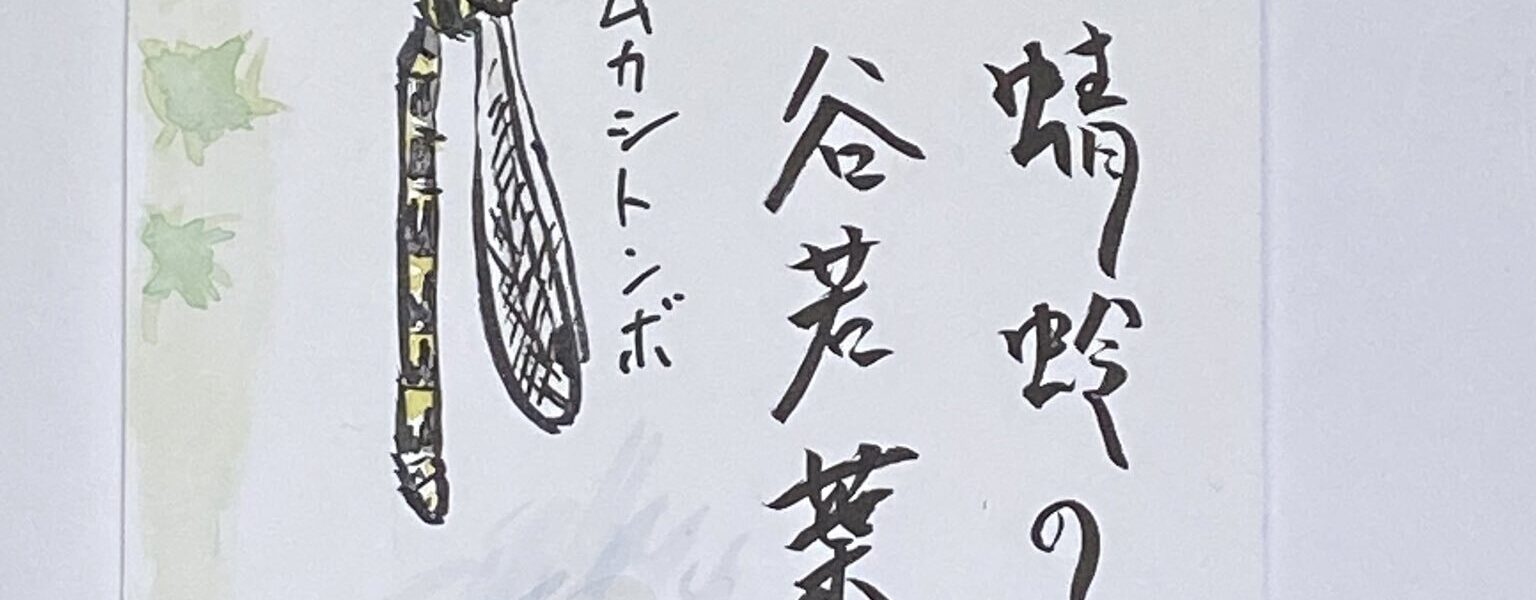 蜻蛉の
谷若葉
ムカシトンボ